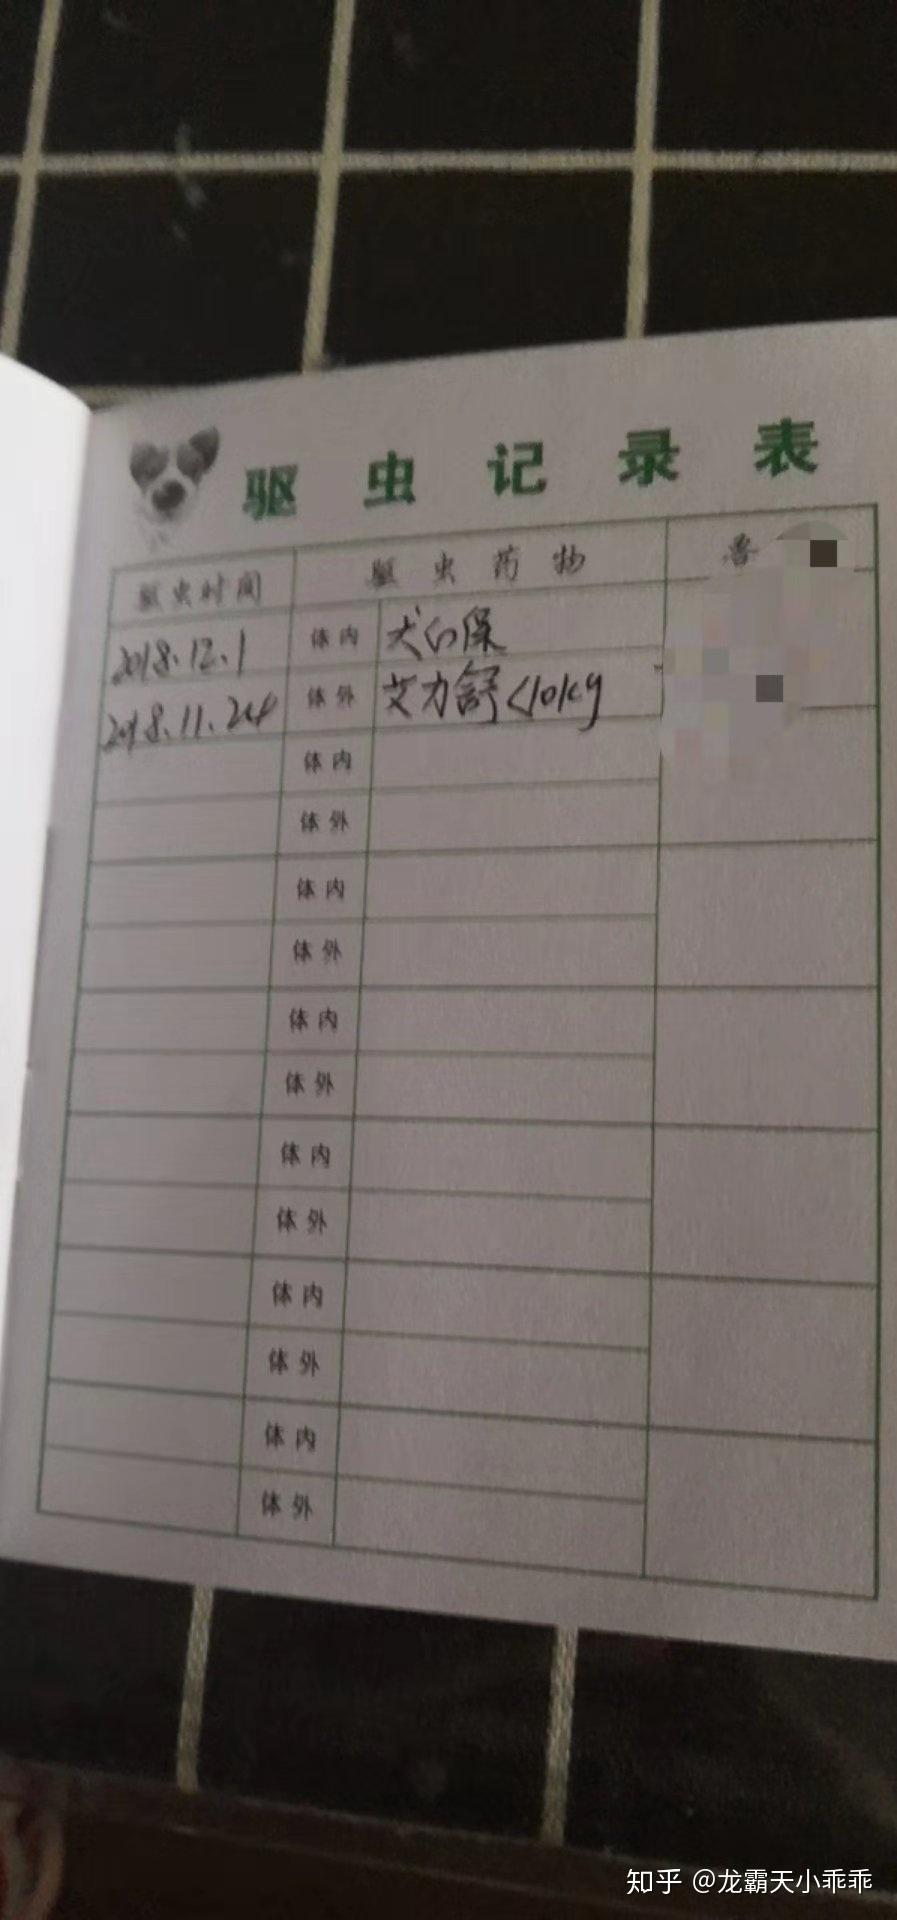 驱虫记录表
驱虫时间 驱虫药物 兽
2018.12.1 体内 犬心保
2018.11.24 体外 艾力舒<10kg
体内
体外
体内
体外
体内
体外
体内
体外
体内
体外
体内
体外
知乎 @龙霸天小乖乖